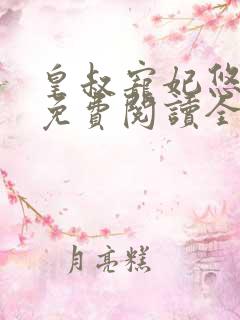 皇叔寵妃悠
免費閱讀全
月亮糕